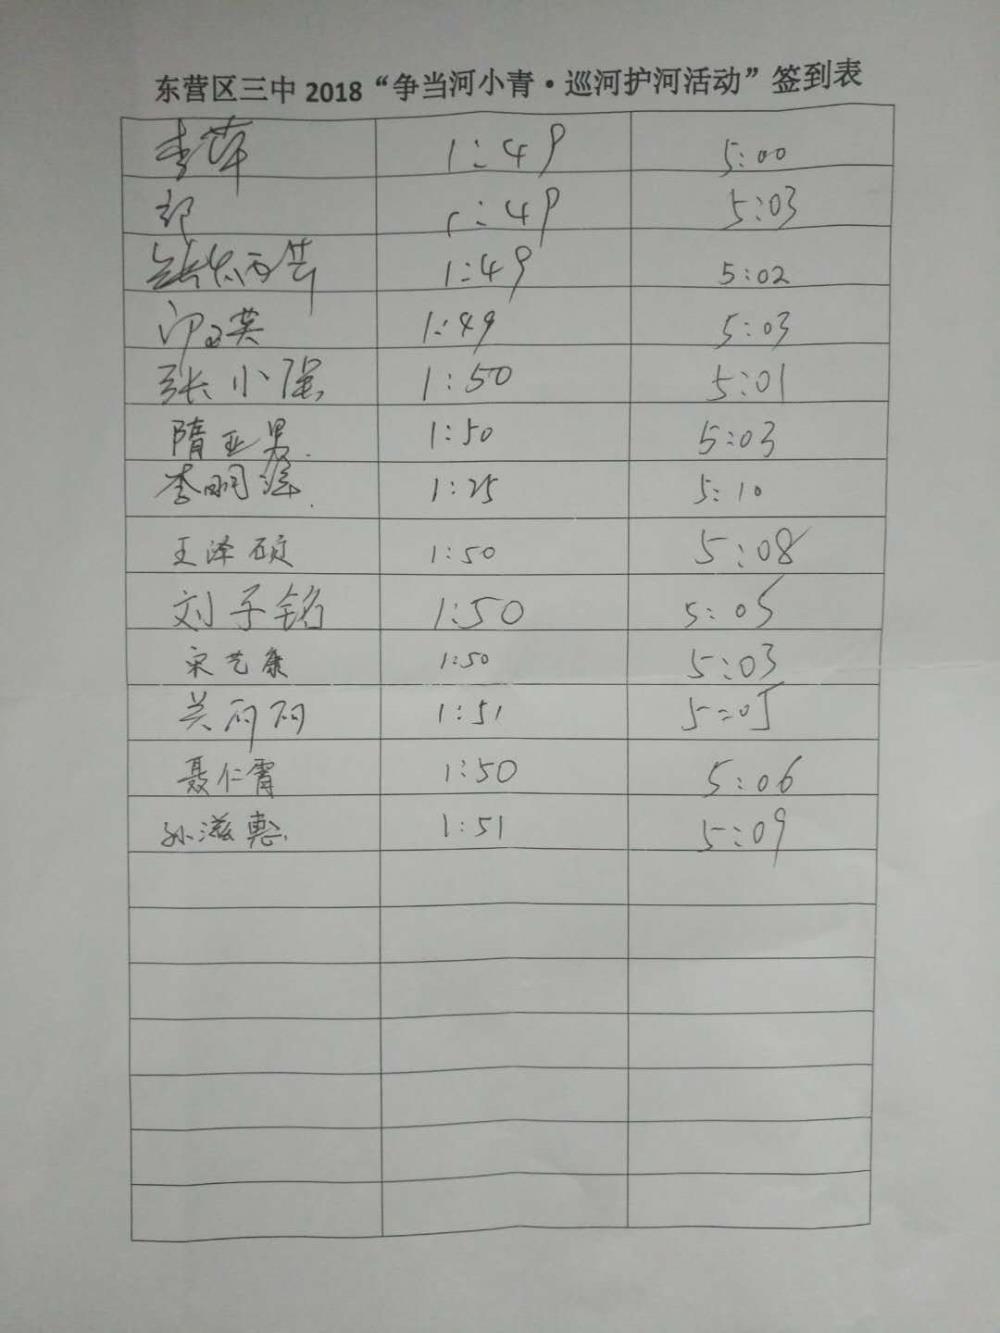 东营区三中 2018 “争当河小青·巡河护河活动” 签到表
李萍 1:49 5:00
1:49 5:03
1:49 5:02
1:49 5:03
张小强 1:50 5:01
隋亚男 1:50 5:03
李明 1:25 5:10
王泽碇 1:50 5:08
刘子铭 1:50 5:05
宋艺康 1:50 5:03
1:51 5:05
聂仁霄 1:50 5:06
孙滋惠 1:51 5:09